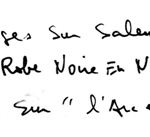 ges Sur Salem
Robe Noire En N
Sur " l'Arc e